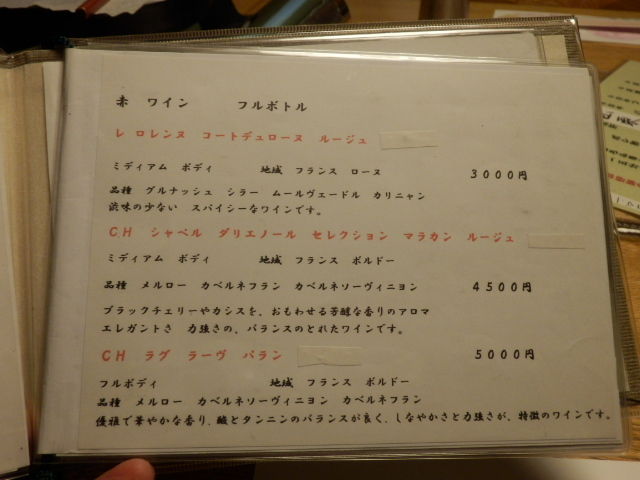 赤 ワイン フルボトル
レ ロレンヌ コートデュローヌ ルージュ
ミディアム ボディ 地域 フランス ローヌ 3000円
品種 グルナッシュ シラー ムールヴェードル カリニャン
渋味の少ない スパイシーなワインです。
CH シャペル ダリエノール セレクション マラカン ルージュ
ミディアム ボディ 地域 フランス ボルドー
品種 メルロー カベルネフラン カベルネソーヴィニヨン 4500円
ブラックチェリーやカシスを、おもわせる芳醇な香りのアロマ
エレガントさ 力強さの、バランスのとれたワインです。
CH ラグ ラーヴ バラン 5000円
フルボディ 地域 フランス ボルドー
品種 メルロー カベルネソーヴィニヨン カベルネフラン
優雅で華やかな香り、酸とタンニンのバランスが良く、しなやかさと力強さが、特徴のワインです。